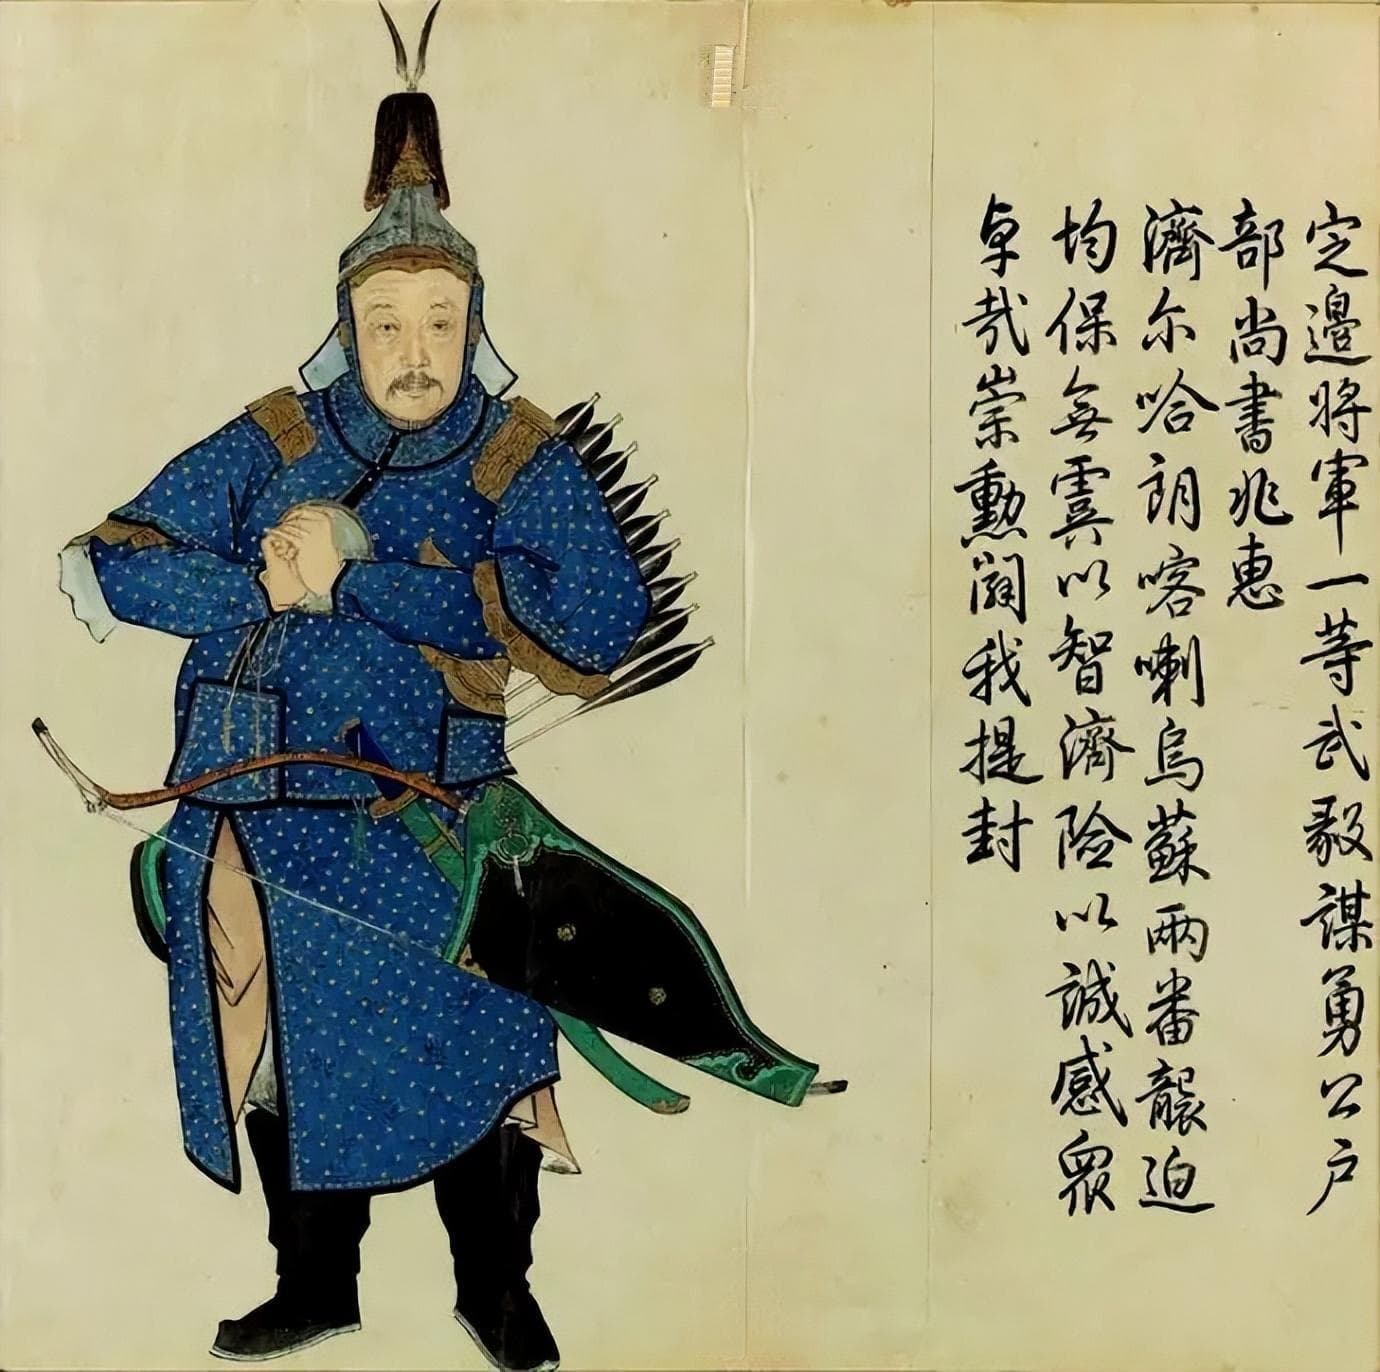 定邉將軍一等武毅謀勇公户
部尚書兆惠
濟尔哈朗喀喇烏蘇兩番襲迫
均保無虞以智濟險以誠感衆
卓哉崇勲闢我提封